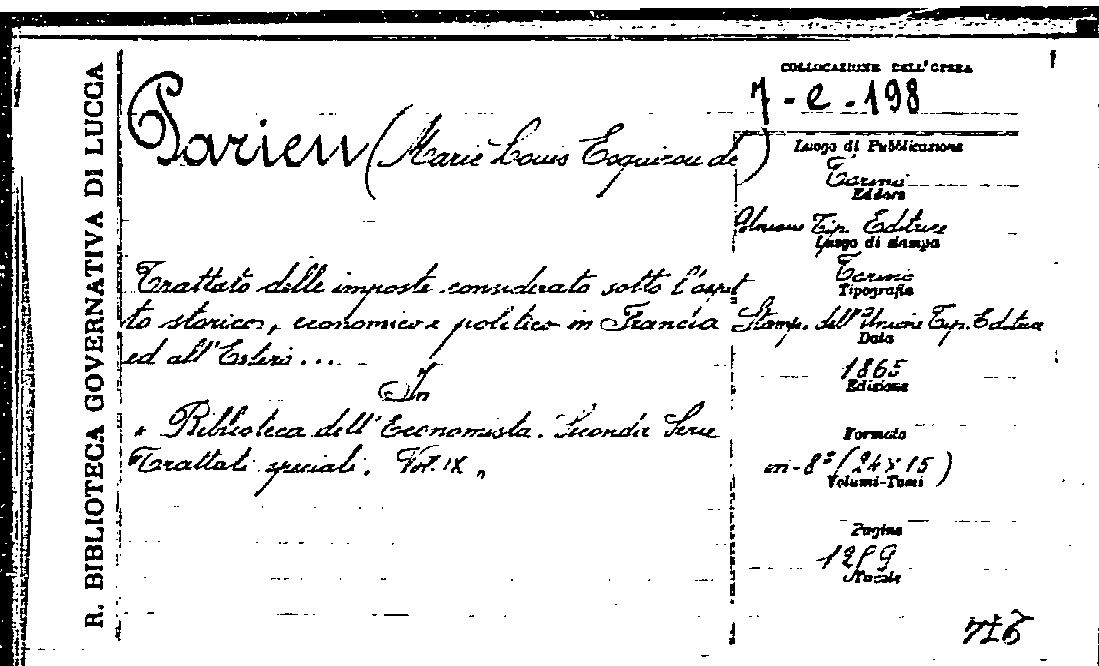 R. BIBLIOTECA GOVERNATIVA DI LUCCA
COLLOCAZIONE DELL'OPERA
7-e-198
Parieu (Marie Louis Esquirou de)
Trattato delle imposte considerato sotto l'aspet
to storico, economico e politico in Francia
ed all'Estero...
In
" Biblioteca dell'Economista. Seconda Serie
Trattati speciali. Vol. IX "
Luogo di Pubblicazione
Torino
Editore
Unione Tip. Editrice
Luogo di stampa
Torino
Tipografia
Stamp. dell'Unione Tip. Editrice
Data
1865
Edizione
Formato
in-8º (24x15)
Volumi-Tomi
Pagine
Natale